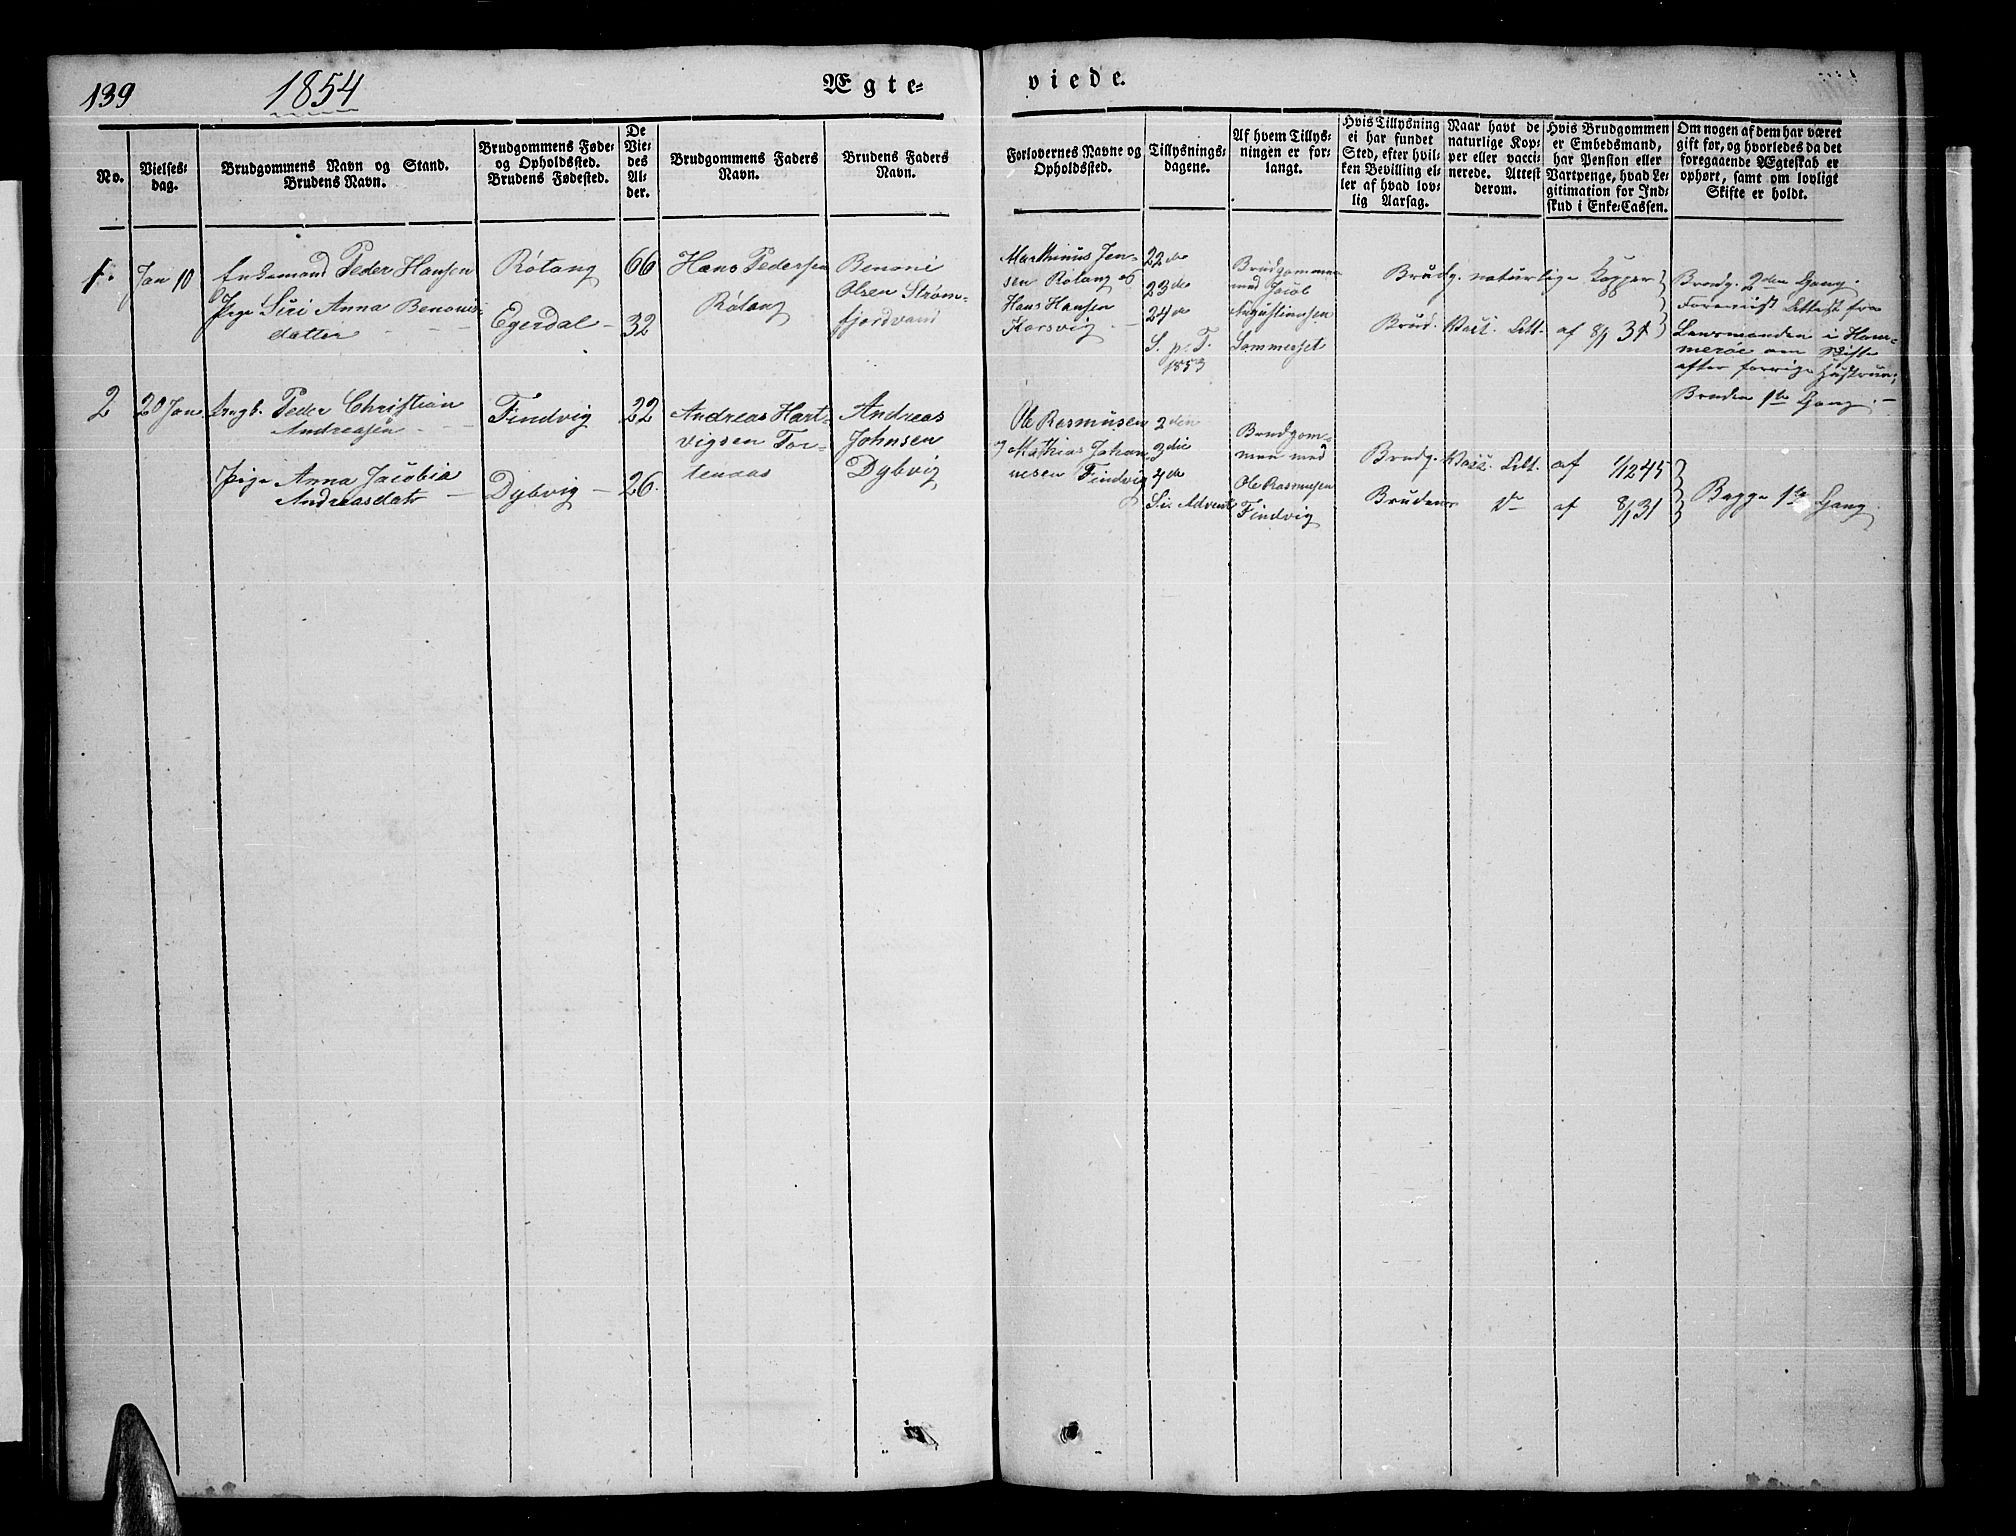 139
1854
Ægte-
viede.
No.
Vielses-
dag.
Brudgommens Navn og Stand.
Brudens Navn.
Brudgommens Føde-
og Opholdssted.
Brudens Fødested.
De
Vie-
des
Al-
der.
Brudgommens Faders
Navn.
Brudens Faders
Navn.
Forlovernes Navne og
Opholdssted.
Tillysnings-
dagene.
Af hvem Tillys-
ningen er for-
langt.
Hvis Tillysning
ei har fundet
Sted, efter hvil-
ken Bevilling el-
ler af hvad lov-
lig Aarsag.
Naar havt de
naturlige Kop-
per eller vacci-
nerede. Attest
derom.
Hvis Brudgommen
er Embedsmand,
har Pension eller
Vartpenge, hvad Le-
gitimation for Ind-
skud i Enke-Cassen.
Om nogen af dem har været
gift før, og hvorledes da det
foregaaende Ægteskab er
ophørt, samt om lovligt
Skifte er holdt.
1.
Jan 10
Enkemand Peder Hansen
Pige Siri Anna Benonis-
datter
Røtang
Egerdal
66
32
Hans Pedersen
Røtang
Benoni
Olsen Strøm-
fjordvand
Marthinus Jen-
sen Røtang og
Hans Hansen
Korsvig
22de
23de
24de
S. p. T.
1853
Brudgommen
med Jacob
Augustinusen
Sommerset
Brudg. naturlige Kopper
Brud. Vacc. Att. af 8/1 31
Brudg. 2den Gang.
Foreviist Attest fra
Lensmanden i Ham-
merøe om Skifte
efter forrige Hustrue;
Bruden 1ste Gang.
2
20 Jan
Ungk. Peder Christian
Andreasen
Pige Anna Jacobia
Andreasdatr
Findvig
Dybvig
22
26
Andreas Hart-
vigsen Tor-
tenaas
Andreas
Johnsen
Dybvig
Ole Rasmusen
og Mathias Johan-
nesen Findvig
2den
3die
4de
Sø. Advent
Brudgom-
men med
Ole Rasmusen
Findvig
Brudg. Vacc. Att. af 1/12 45
Brudens do af 8/1 31
Begge 1ste Gang.